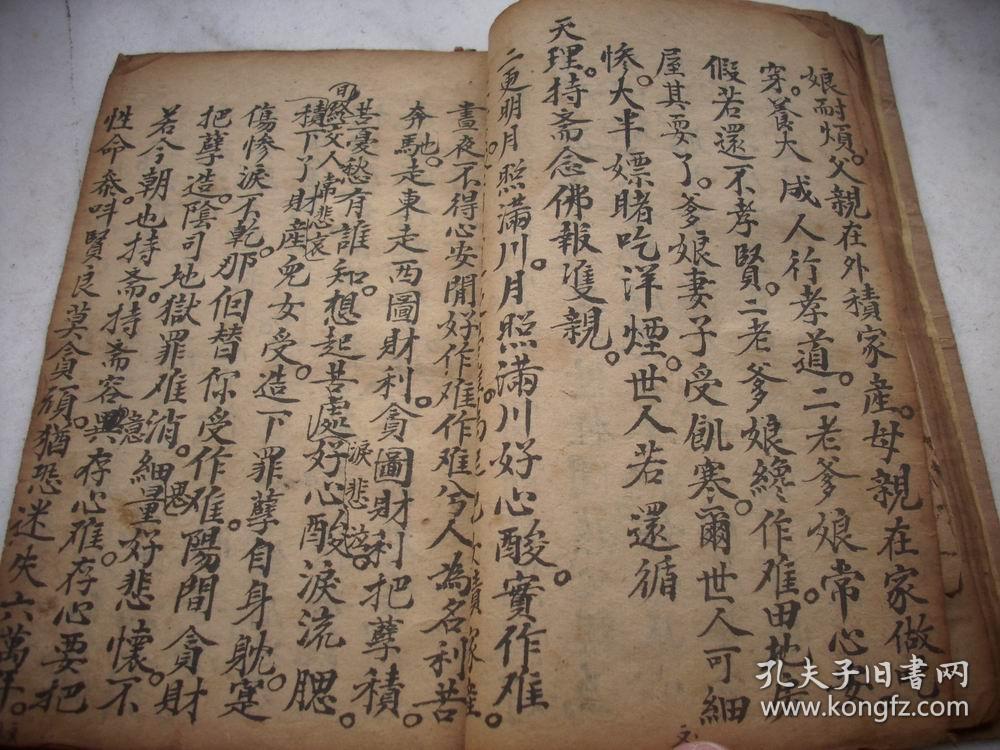 娘耐煩。父親在外積家產。母親在家做
穿。養大成人行孝道。二老爹娘常心安
假若還不孝賢。二老爹娘纔作难田地房
屋其耍了。爹娘妻子受飢寒。爾世人可細
慘。大半嫖賭吃洋煙。世人若還循
天理。持斋念佛報雙親。
二更明月照滿川。月照滿川好心酸。實作难
晝夜不得心安閒好作难作难兮人為名利苦
奔馳。走東走西圖財利。貪圖財利把孽積。
其憂愁有誰知。想起苦處好心酸淚悲泣。
積下了財產兒女受。造下罪孽自身躭。寔
傷慘淚不乾。那個替你受作难。陽間貪財
把孽造。陰司地獄罪难消。細思量好悲懷。不
若今朝也持斋。持斋容易存心难。存心要把
性命叅。呌賢良莫貪頑。猶恐迷失六萬年。
孔夫子旧书网
www.kongfz.com